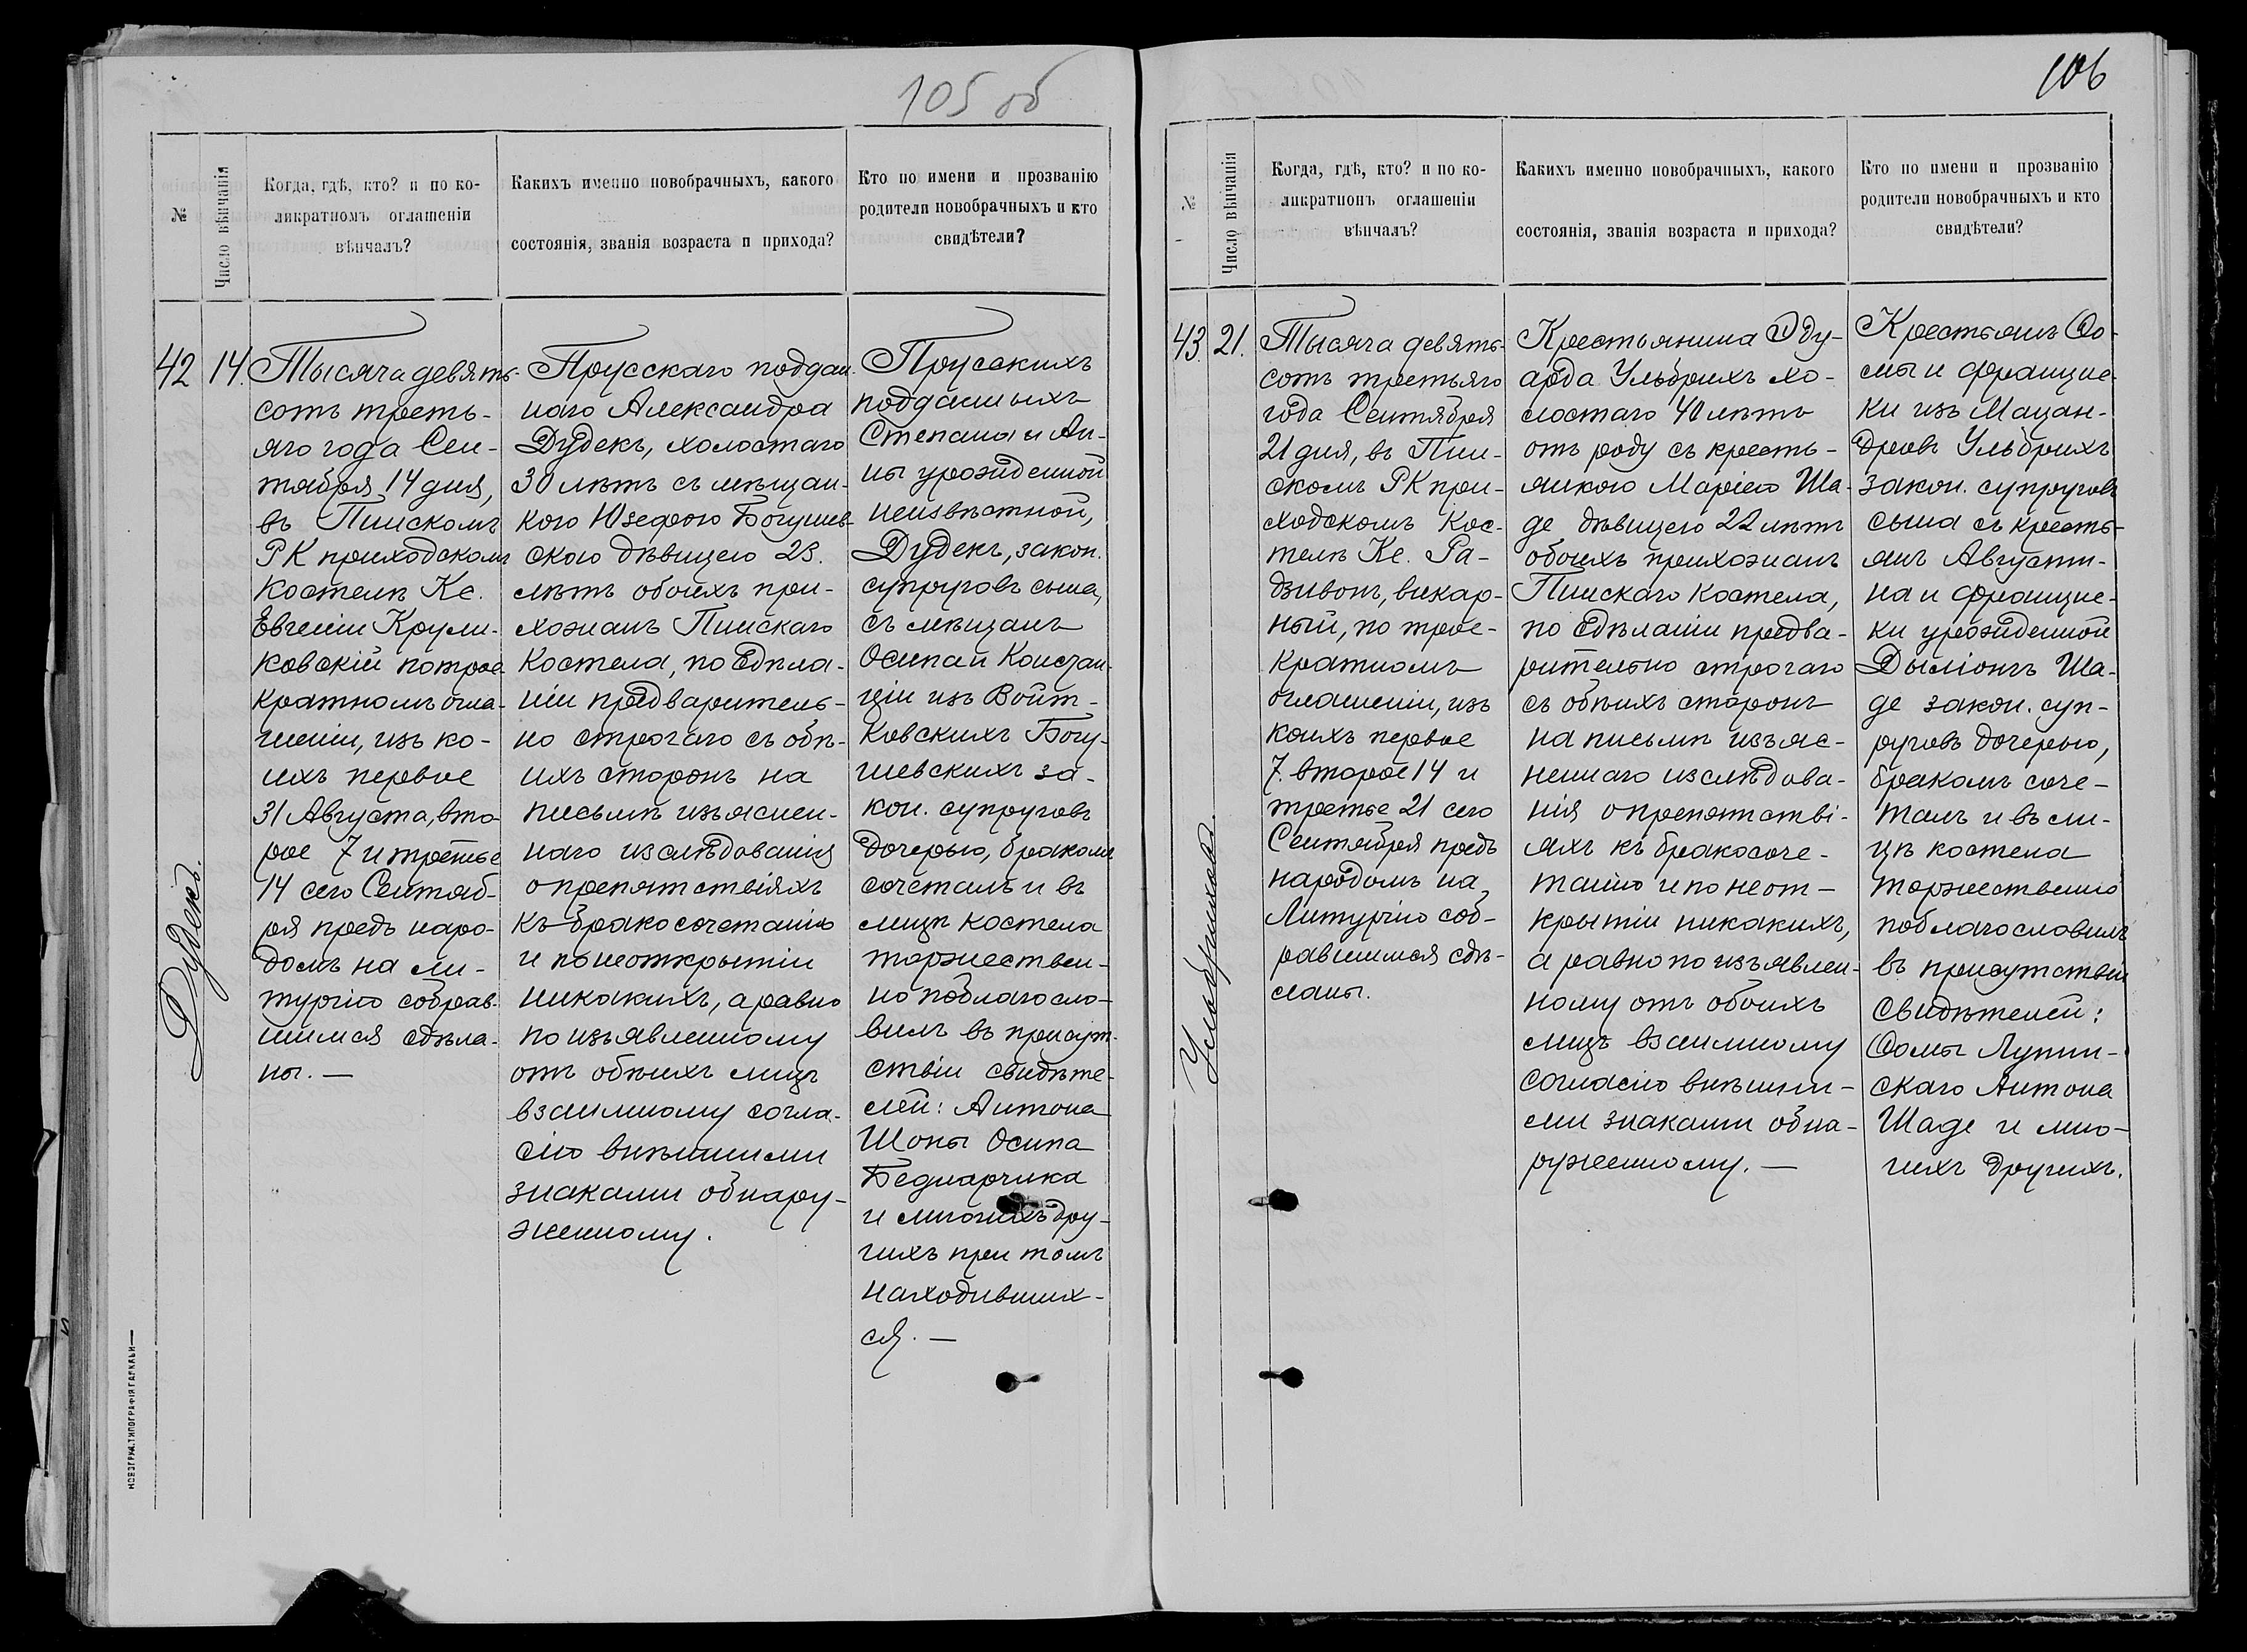 105 об
№
Число вѣнчанія
Когда, гдѣ, кто? и по ко-
ликратномъ оглашеніи
вѣнчалъ?
Какихъ именно новобрачныхъ, какого
состоянія, званія возраста и прихода?
Кто по имени и прозванію
родители новобрачныхъ и кто
свидѣтели?
42
14.
Дудекъ.
Тысяча девять-
сотъ треть-
яго года Сен-
тября 14 дня,
въ Пинскомъ
РК приходскомъ
костелѣ Кс.
Евгеній Крули-
ковскій по трое
кратномъ огла-
шеніи, изъ ко-
ихъ первое
31 Августа, вто-
рое 7 и третье
14 сего Сентяб-
ря предъ наро-
домъ на ли-
тургію собрав-
шимся сдѣла-
ны. —
Прусскаго поддан-
наго Александра
Дудекъ, холостаго
30 лѣтъ съ мѣщан-
кою Юзефою Богушев-
скою дѣвицею 23.
лѣтъ обоихъ при-
хожанъ Пинскаго
костела, по сдѣла-
ніи предваритель-
но строгаго съ обѣ-
ихъ сторонъ на
письмѣ изъяснен-
наго изслѣдованія
о препятствіяхъ
къ бракосочетанію
и по неоткрытіи
никакихъ, а равно
по изъявленному
отъ обѣихъ лицъ
взаимному согла-
сію внѣшними
знаками обнару-
женному.
Прусскихъ
подданныхъ
Степана и Ан-
ны урожденной
неизвѣстной,
Дудекъ, закон.
супруговъ сына,
съ мѣщанъ
Осипа и Констан-
ціи изъ Войт-
ковскихъ Богу-
шевскихъ за-
кон. супруговъ
дочерью, бракомъ
сочеталъ и въ
лицѣ костела
торжествен-
но поблагосло-
вилъ въ присут-
ствіи свидѣте-
лей: Антона
Шопы Осипа
Беднарчика
и многихъ дру-
гихъ при томъ
находивших-
ся. —
НОВОГРУД. ТИПОГРАФІЯ ГАРКАВИ
106
№
Число вѣнчанія
Когда, гдѣ, кто? и по ко-
ликратномъ оглашеніи
вѣнчалъ?
Какихъ именно новобрачныхъ, какого
состоянія, званія возраста и прихода?
Кто по имени и прозванію
родители новобрачныхъ и кто
свидѣтели?
43.
21.
Тысяча девять-
сотъ третьяго
года Сентября
21 дня, въ Пин-
скомъ РК при-
ходскомъ Кос-
телѣ Кс. Ра-
дзивонъ, викар-
ный, по трое-
кратномъ
оглашеніи, изъ
коихъ первое
7. второе 14 и
третье 21 сего
Сентября предъ
народомъ на
Литургію соб-
равшимся сдѣ-
ланы.
Крестьянина Эду-
арда Ульбрихъ хо-
лостаго 40 лѣтъ
отъ роду съ кресть-
янкою Маріею Ша-
де дѣвицею 22 лѣтъ
обоихъ прихожанъ
Пинскаго Костела,
по сдѣланіи предва-
рительно строгаго
съ обѣихъ сторонъ
на письмѣ изъяс-
неннаго изслѣдова-
нія о препятстві-
яхъ къ бракосоче-
танію и по неот-
крытіи никакихъ,
а равно по изъявлен-
ному отъ обоихъ
лицъ взаимному
согласію внѣшни-
ми знаками обна-
руженному. —
Крестьянъ Ѳо-
мы и Францис-
ки изъ Мацан-
дровъ Ульбрихъ
закон. супруговъ
сына съ кресть-
янъ Августи-
на и Францис-
ки урожденной
Дыліонъ Ша-
де закон. суп-
руговъ дочерью,
бракомъ соче-
талъ и въ ли-
цѣ костела
торжественно
поблагословилъ
въ присутствіи
свидѣтелей:
Ѳомы Лупин-
скаго Антона
Шаде и мно-
гихъ другихъ.